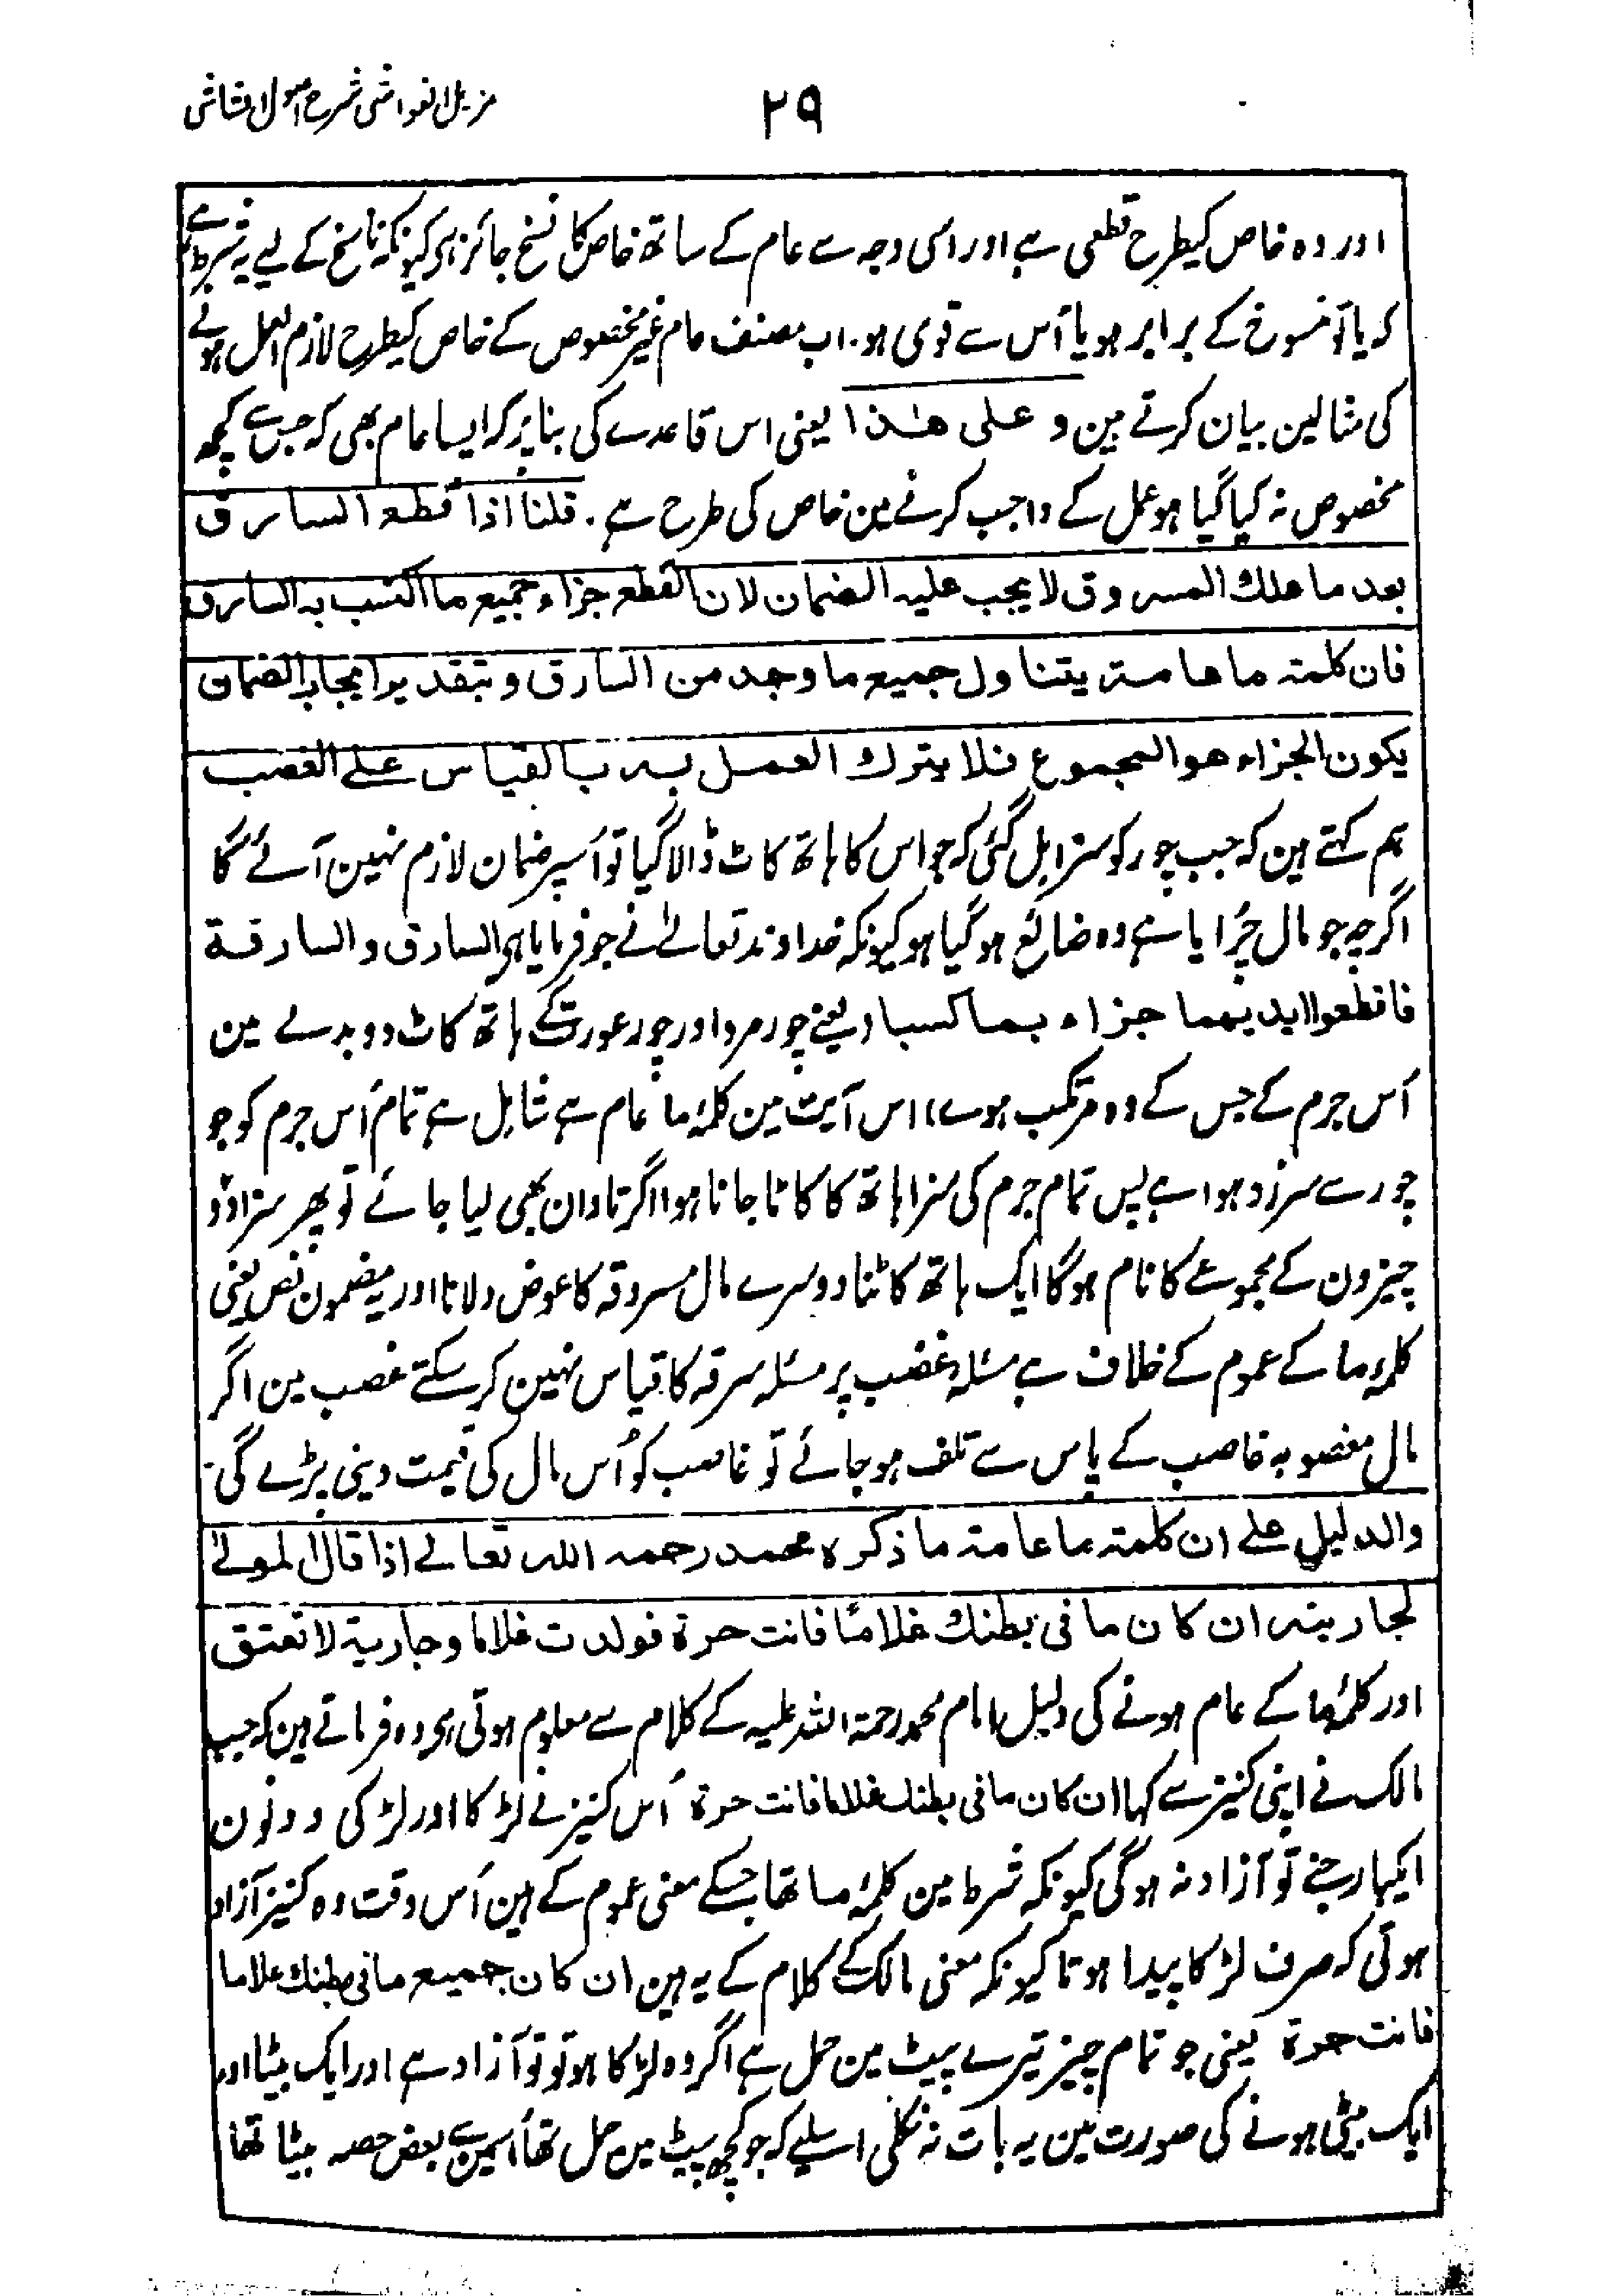 مزیل الغواشی شرح اصول الشاشی
۲۹
اور وہ خاص کیطرح قطعی ہے اور اسی وجہ سے عام کے ساتھ خاص کا نسخ جائز ہی کیونکہ ناسخ کے لیے یہ شرط ہے
کہ یا تو منسوخ کے برابر ہو یا اُس سے قوی ہو۔ اب مصنف عام غیر مخصوص کے خاص کیطرح لازم العمل ہونے
کی مثالین بیان کرتے ہین و علی هذا یعنی اس قاعدے کی بنا پر کہ ایسا عام بھی کہ جس سے کچھ
مخصوص نہ کیا گیا ہو عمل کے واجب کرنے مین خاص کی طرح ہے۔ قلنا اذا قطع السارق
بعد ما هلك المسروق لا يجب عليه الضمان لان القطع جزاء جميع ما اكتسب به السارق
فان كلمة ما عامة يتناول جميع ما وجد من السارق و بتقدير ايجاب الضمان
يكون الجزاء هو المجموع فلا يترك العمل به بالقياس على الغصب
ہم کہتے ہین کہ جب چور کو سزا مل گئی کہ جو اس کا ہاتھ کاٹ ڈالا گیا تو اُسپر ضمان لازم نہین آئے گا
اگرچہ جو مال چُرایا ہے وہ ضائع ہو گیا ہو کیونکہ خداوند تعالےٰ نے جو فرمایا ہی السارق والسارقة
فاقطعوا ايديهما جزاء بما كسبا (یعنے چور مرد اور چور عورت کے ہاتھ کاٹ دو بدلے مین
اُس جرم کے جس کے وہ مرتکب ہوے) اس آیت مین کلمۂ ما عام ہے شامل ہے تمام اُس جرم کو جو
چور سے سرزد ہوا ہے پس تمام جرم کی سزا ہاتھ کا کاٹا جانا ہوا اگر تاوان بھی لیا جائے تو پھر سزا دو
چیزون کے مجموعے کا نام ہوگا ایک ہاتھ کاٹنا دوسرے مال مسروقہ کا عوض دلانا اور یہ مضمون نص یعنی
کلمۂ ما کے عموم کے خلاف ہے مسئلہ غصب پر مسئلہ سرقہ کا قیاس نہین کر سکتے غصب مین اگر
مال مغصوبہ غاصب کے پاس سے تلف ہو جائے تو غاصب کو اُس مال کی قیمت دینی پڑے گی۔
والدليل على ان كلمة ما عامة ما ذكره محمد رحمه الله تعالى اذا قال المولى
لجاريته ان كان ما فى بطنك غلامًا فانت حرة فولدت غلاما وجارية لا تعتق
اور کلمۂ ما کے عام ہونے کی دلیل امام محمد رحمۃ اللہ علیہ کے کلام سے معلوم ہوتی ہی وہ فرماتے ہین کہ جب
مالک نے اپنی کنیز سے کہا ان كان ما فى بطنك غلاما فانت حرة اُس کنیز نے لڑکا اور لڑکی دونون
ایکبار جنے تو آزاد نہ ہوگی کیونکہ شرط مین کلمۂ ما تھا جسکے معنی عموم کے ہین اُس وقت وہ کنیز آزاد
ہوتی کہ صرف لڑکا پیدا ہوتا کیونکہ معنی مالک کے کلام کے یہ ہین ان كان جميع ما فى بطنك غلاما
فانت حرة یعنی جو تمام چیز تیرے پیٹ مین حمل ہے اگر وہ لڑکا ہو تو تو آزاد ہے اور ایک بیٹا اور
ایک بیٹی ہونے کی صورت مین یہ بات نہ نکلی اسلیے کہ جو کچھ پیٹ مین حمل تھا اُسمین سے بعض حصہ بیٹا تھا